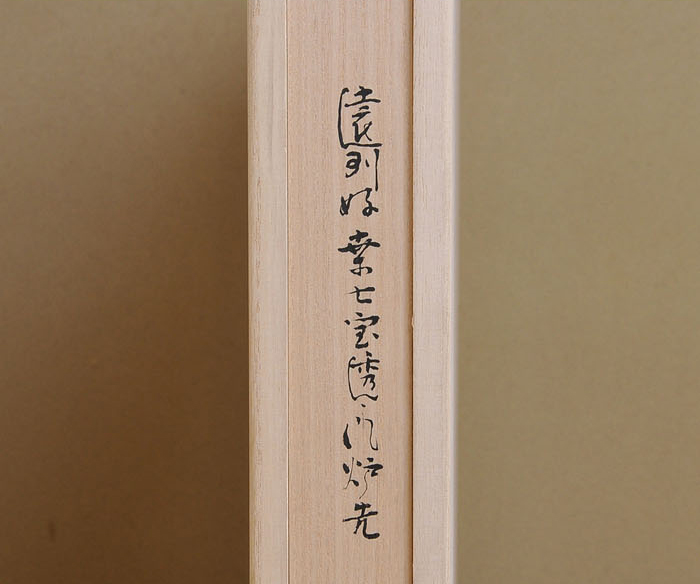 遠州好桑七宝透風炉先